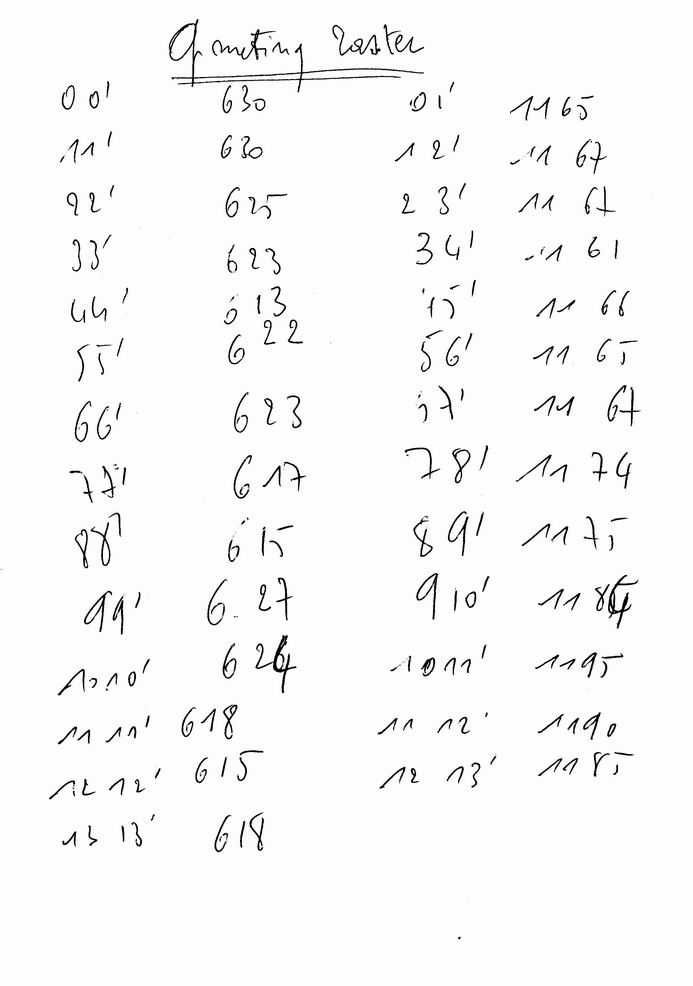 Opmeting raster
00' 630 01' 1165
11' 630 12' 1167
22' 625 23' 1167
33' 623 34' 1161
44' 613 45' 1166
55' 622 56' 1165
66' 623 67' 1167
77' 617 78' 1174
88' 615 89' 1175
99' 627 910' 1184
1010' 624 1011' 1195
11 11' 618 11 12' 1190
12 12' 615 12 13' 1185
13 13' 618